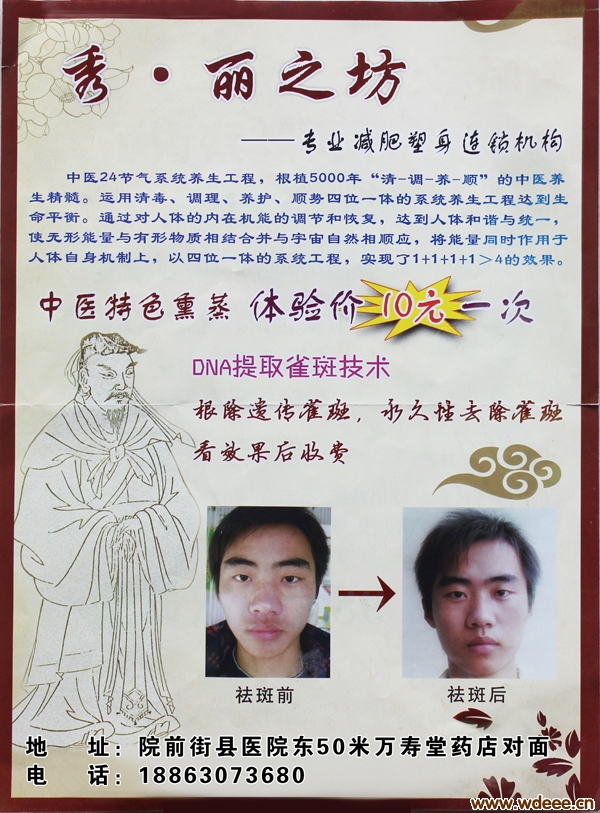 秀·丽之坊
——专业减肥塑身连锁机构
中医24节气系统养生工程，根植5000年“清-调-养-顺”的中医养
生精髓。运用清毒、调理、养护、顺势四位一体的系统养生工程达到生
命平衡。通过对人体的内在机能的调节和恢复，达到人体和谐与统一，
使无形能量与有形物质相结合并与宇宙自然相顺应，将能量同时作用于
人体自身机制上，以四位一体的系统工程，实现了1+1+1+1＞4的效果。
中医特色熏蒸 体验价10元一次
DNA提取雀斑技术
根除遗传雀斑，永久性去除雀斑
看效果后收费
祛斑前 祛斑后
地 址：院前街县医院东50米万寿堂药店对面
电 话：18863073680
www.wdeee.cn